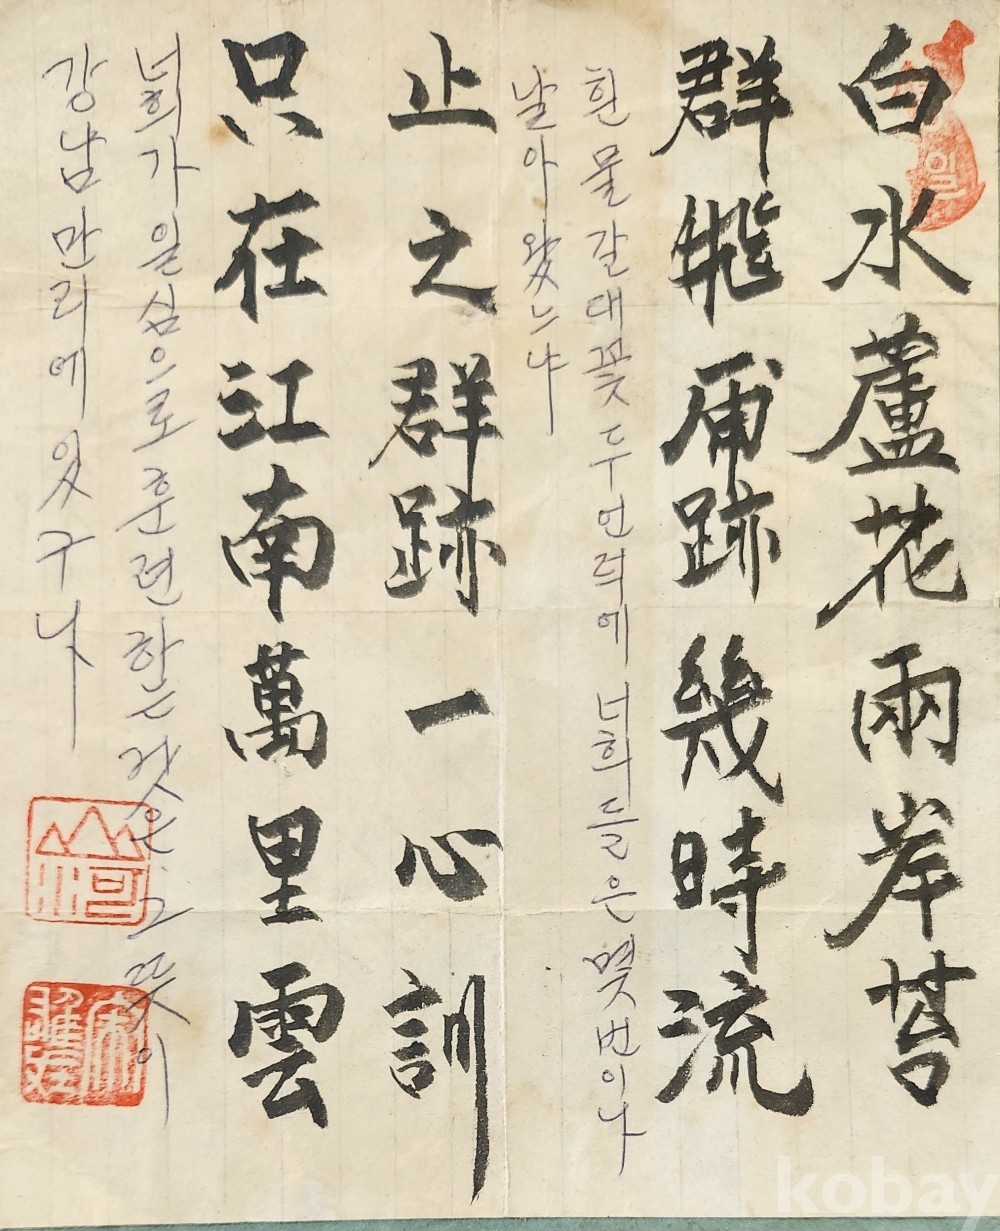 白水蘆花兩岸苔
群 跡幾時流
흰물갈대꽃 두언덕에 너희들은 몇번이나
날아왔느냐
止之群跡一心訓
只在江南萬里雲
너희가 일심으로 훈련하는것은 그 뜻이
강남만리에 있구나
일
山河
kobay